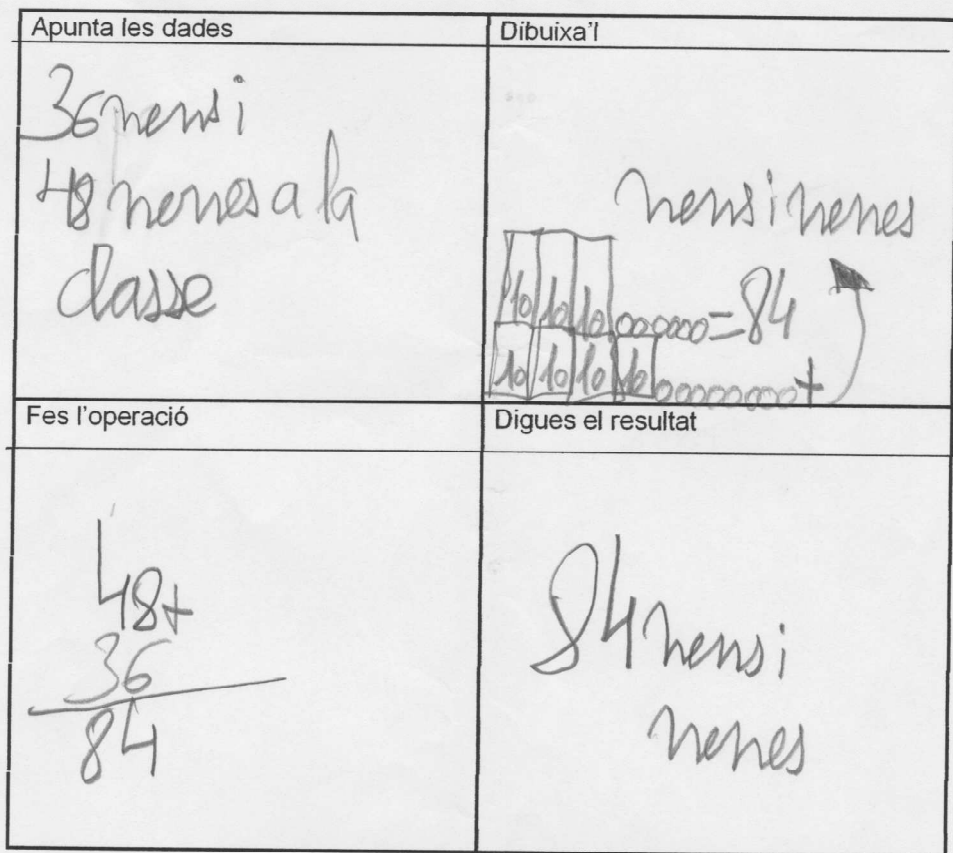 Apunta les dades
36 nens i
48 nenes a la
classe
Dibuixa'l
nens i nenes
10 10 10 oooooo=84
10 10 10 10 oooooooo+
Fes l'operació
48+
36
84
Digues el resultat
84 nens i
nenes